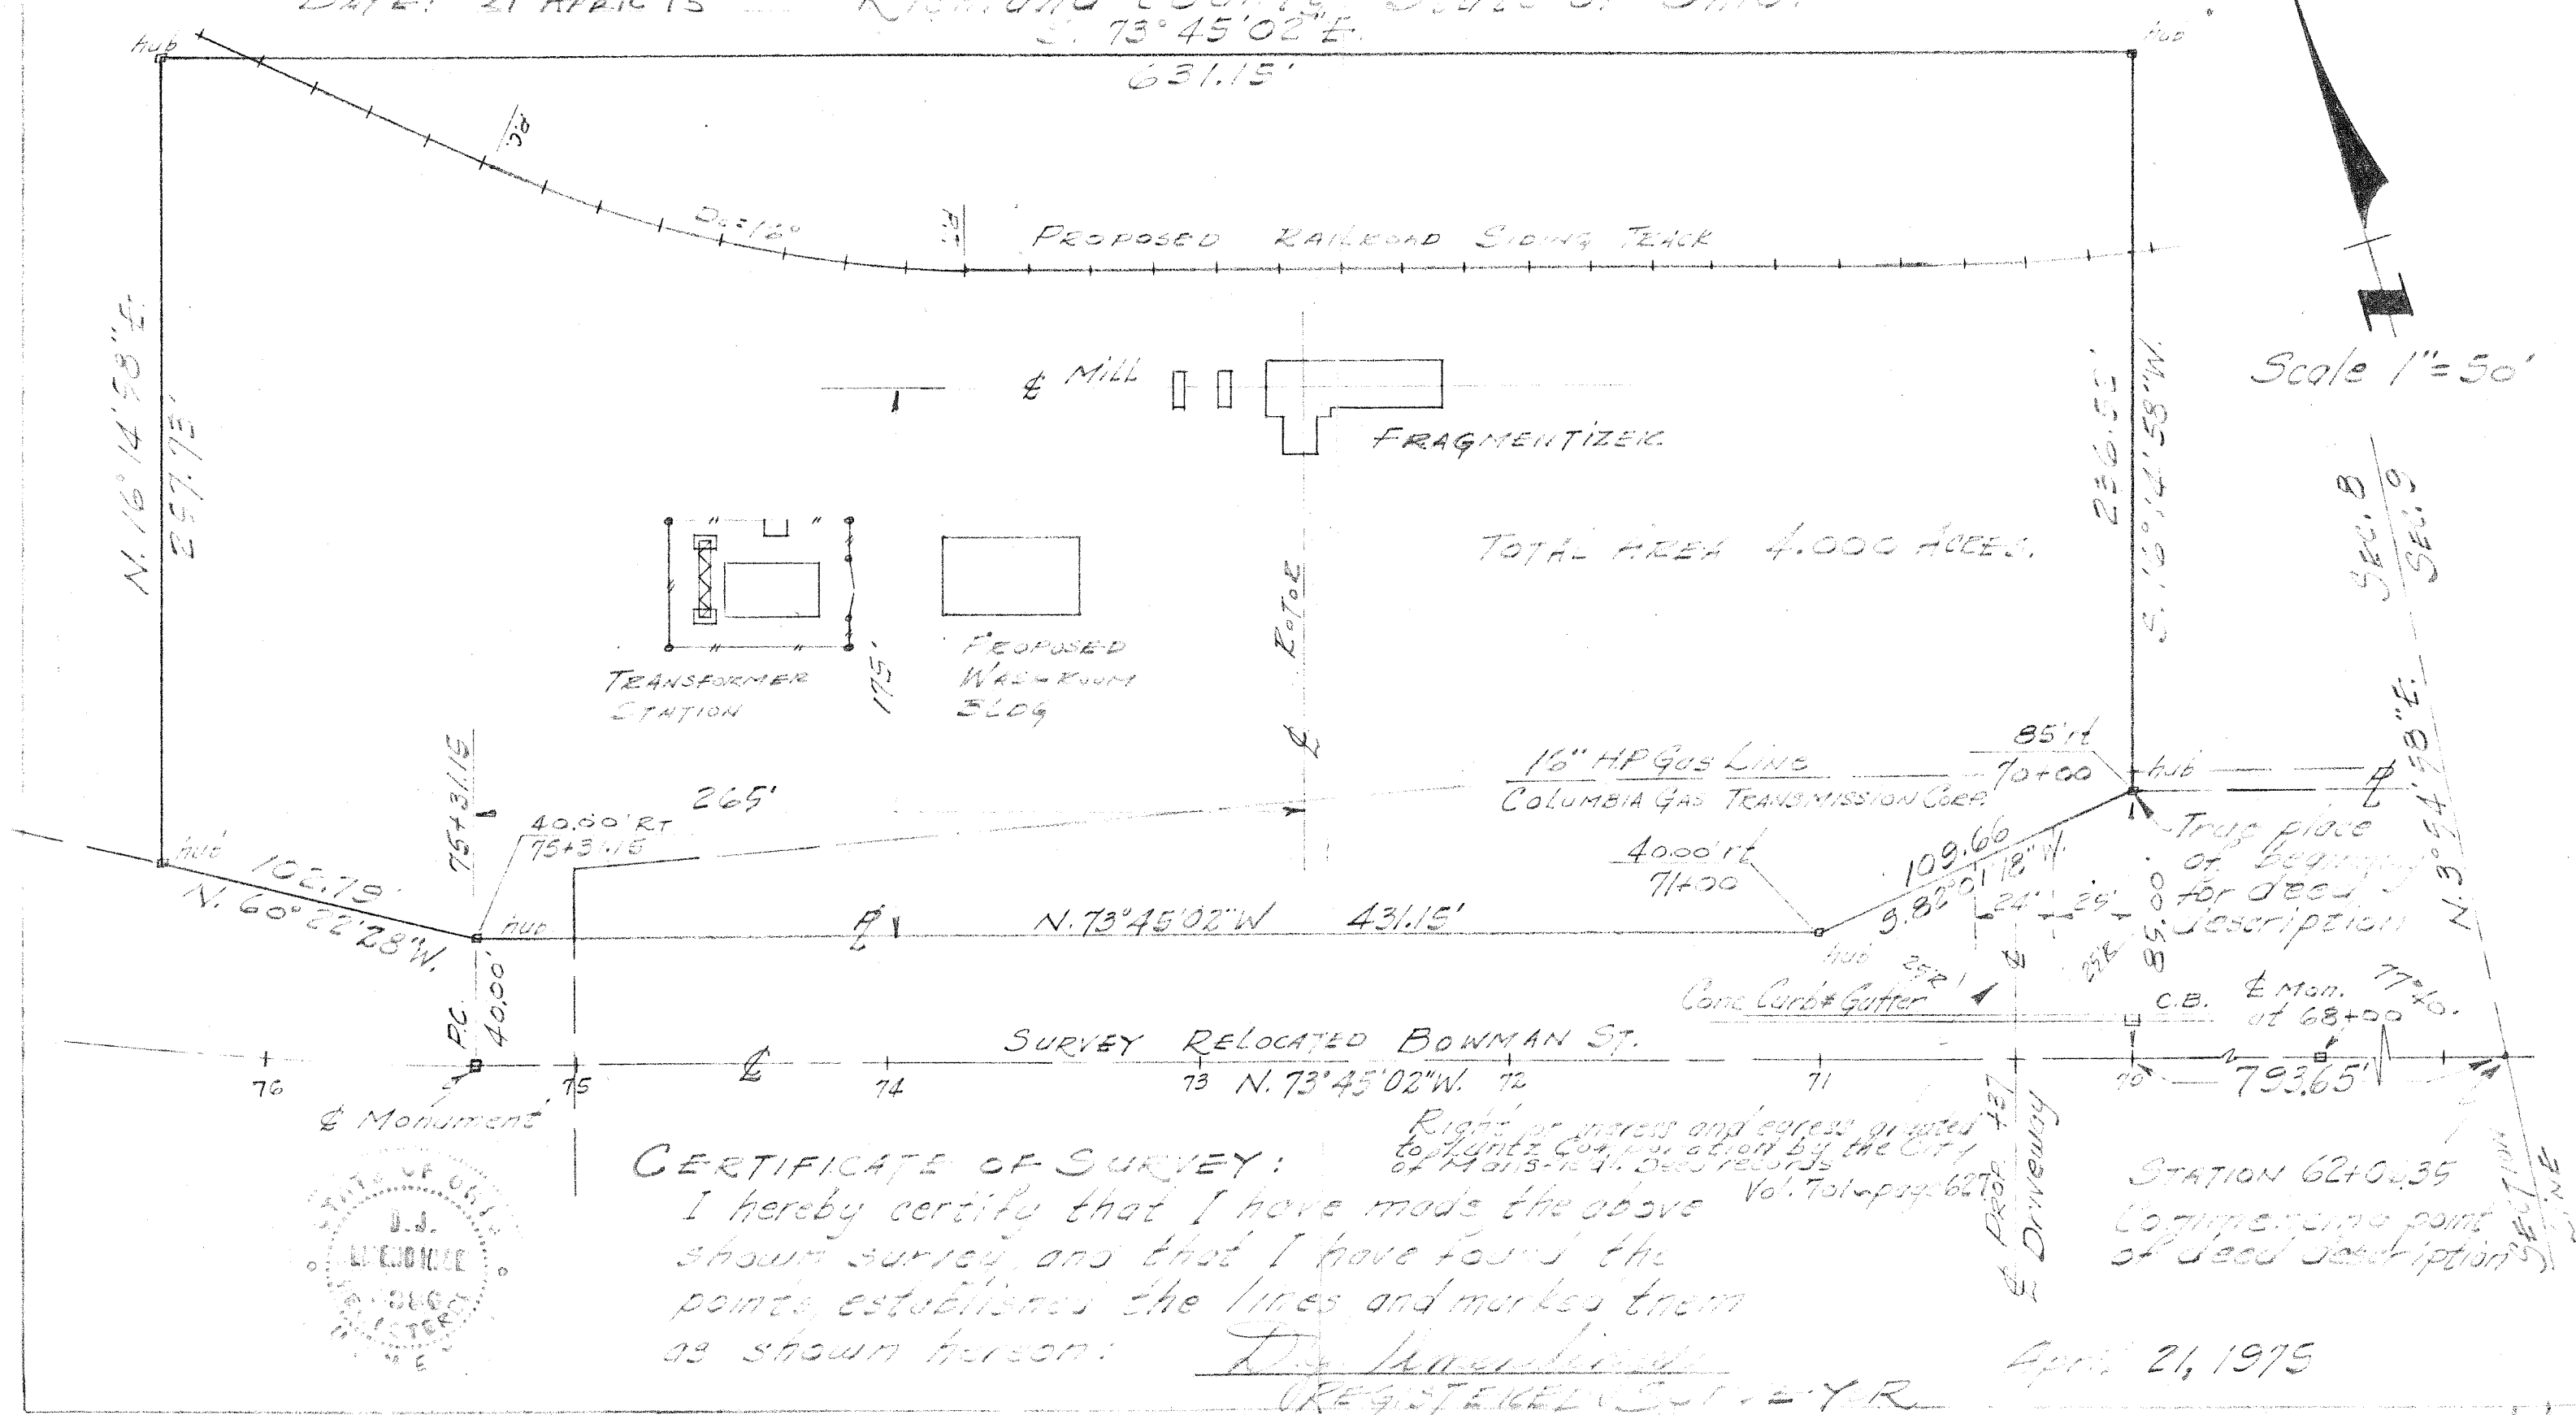 DATE: 21 APRIL 75 Richland County, State of Ohio.
S. 73°45'02"E.
631.15'
hub
hub
P.C.
Dc=12°
P.T.
PROPOSED RAILROAD SIDING TRACK
N. 16° 14' 58" E.
257.73'
℄ MILL
FRAGMENTIZER
236.55'
S. 16° 14' 58" W.
Scale 1"=50'
SEC. 8
SEC. 9
TOTAL AREA 4.000 ACRES.
ROTOR
℄
TRANSFORMER
STATION
175'
PROPOSED
WASHROOM
BLDG
265'
16" H.P. Gas Line
COLUMBIA GAS TRANSMISSION CORP.
85' rt
70+00
hub
True place
of beginning
for deed
description
N. 3° 54' 58" E.
75+31.15
40.00' RT
75+31.15
40.00' rt
71+00
109.66
24' 25'
85.00
hub
102.79'
N. 60° 22' 28" W.
hub
N. 73°45'02"W 431.15'
hub
25'R
25'R
℄
Conc Curb & Gutter
C.B.
℄ Mon.
at 68+00
P.C.
40.00'
SURVEY RELOCATED BOWMAN ST.
76 75 ℄ 74 73 N. 73°45'02"W. 72 71 70 793.65'
℄ Monument
Right of ingress and egress granted
to Luntz Corporation by the City
of Mansfield. Deed records
Vol. 701-page 627
℄ Prop +37
Driveway
STATION 62+06.35
Commencing point
of deed description
SECTION
LINE
CERTIFICATE OF SURVEY:
I hereby certify that I have made the above
shown survey and that I have found the
points, established the lines and marked them
as shown hereon:
REGISTERED SURVEYOR
April 21, 1975
STATE OF OHIO
D.J.